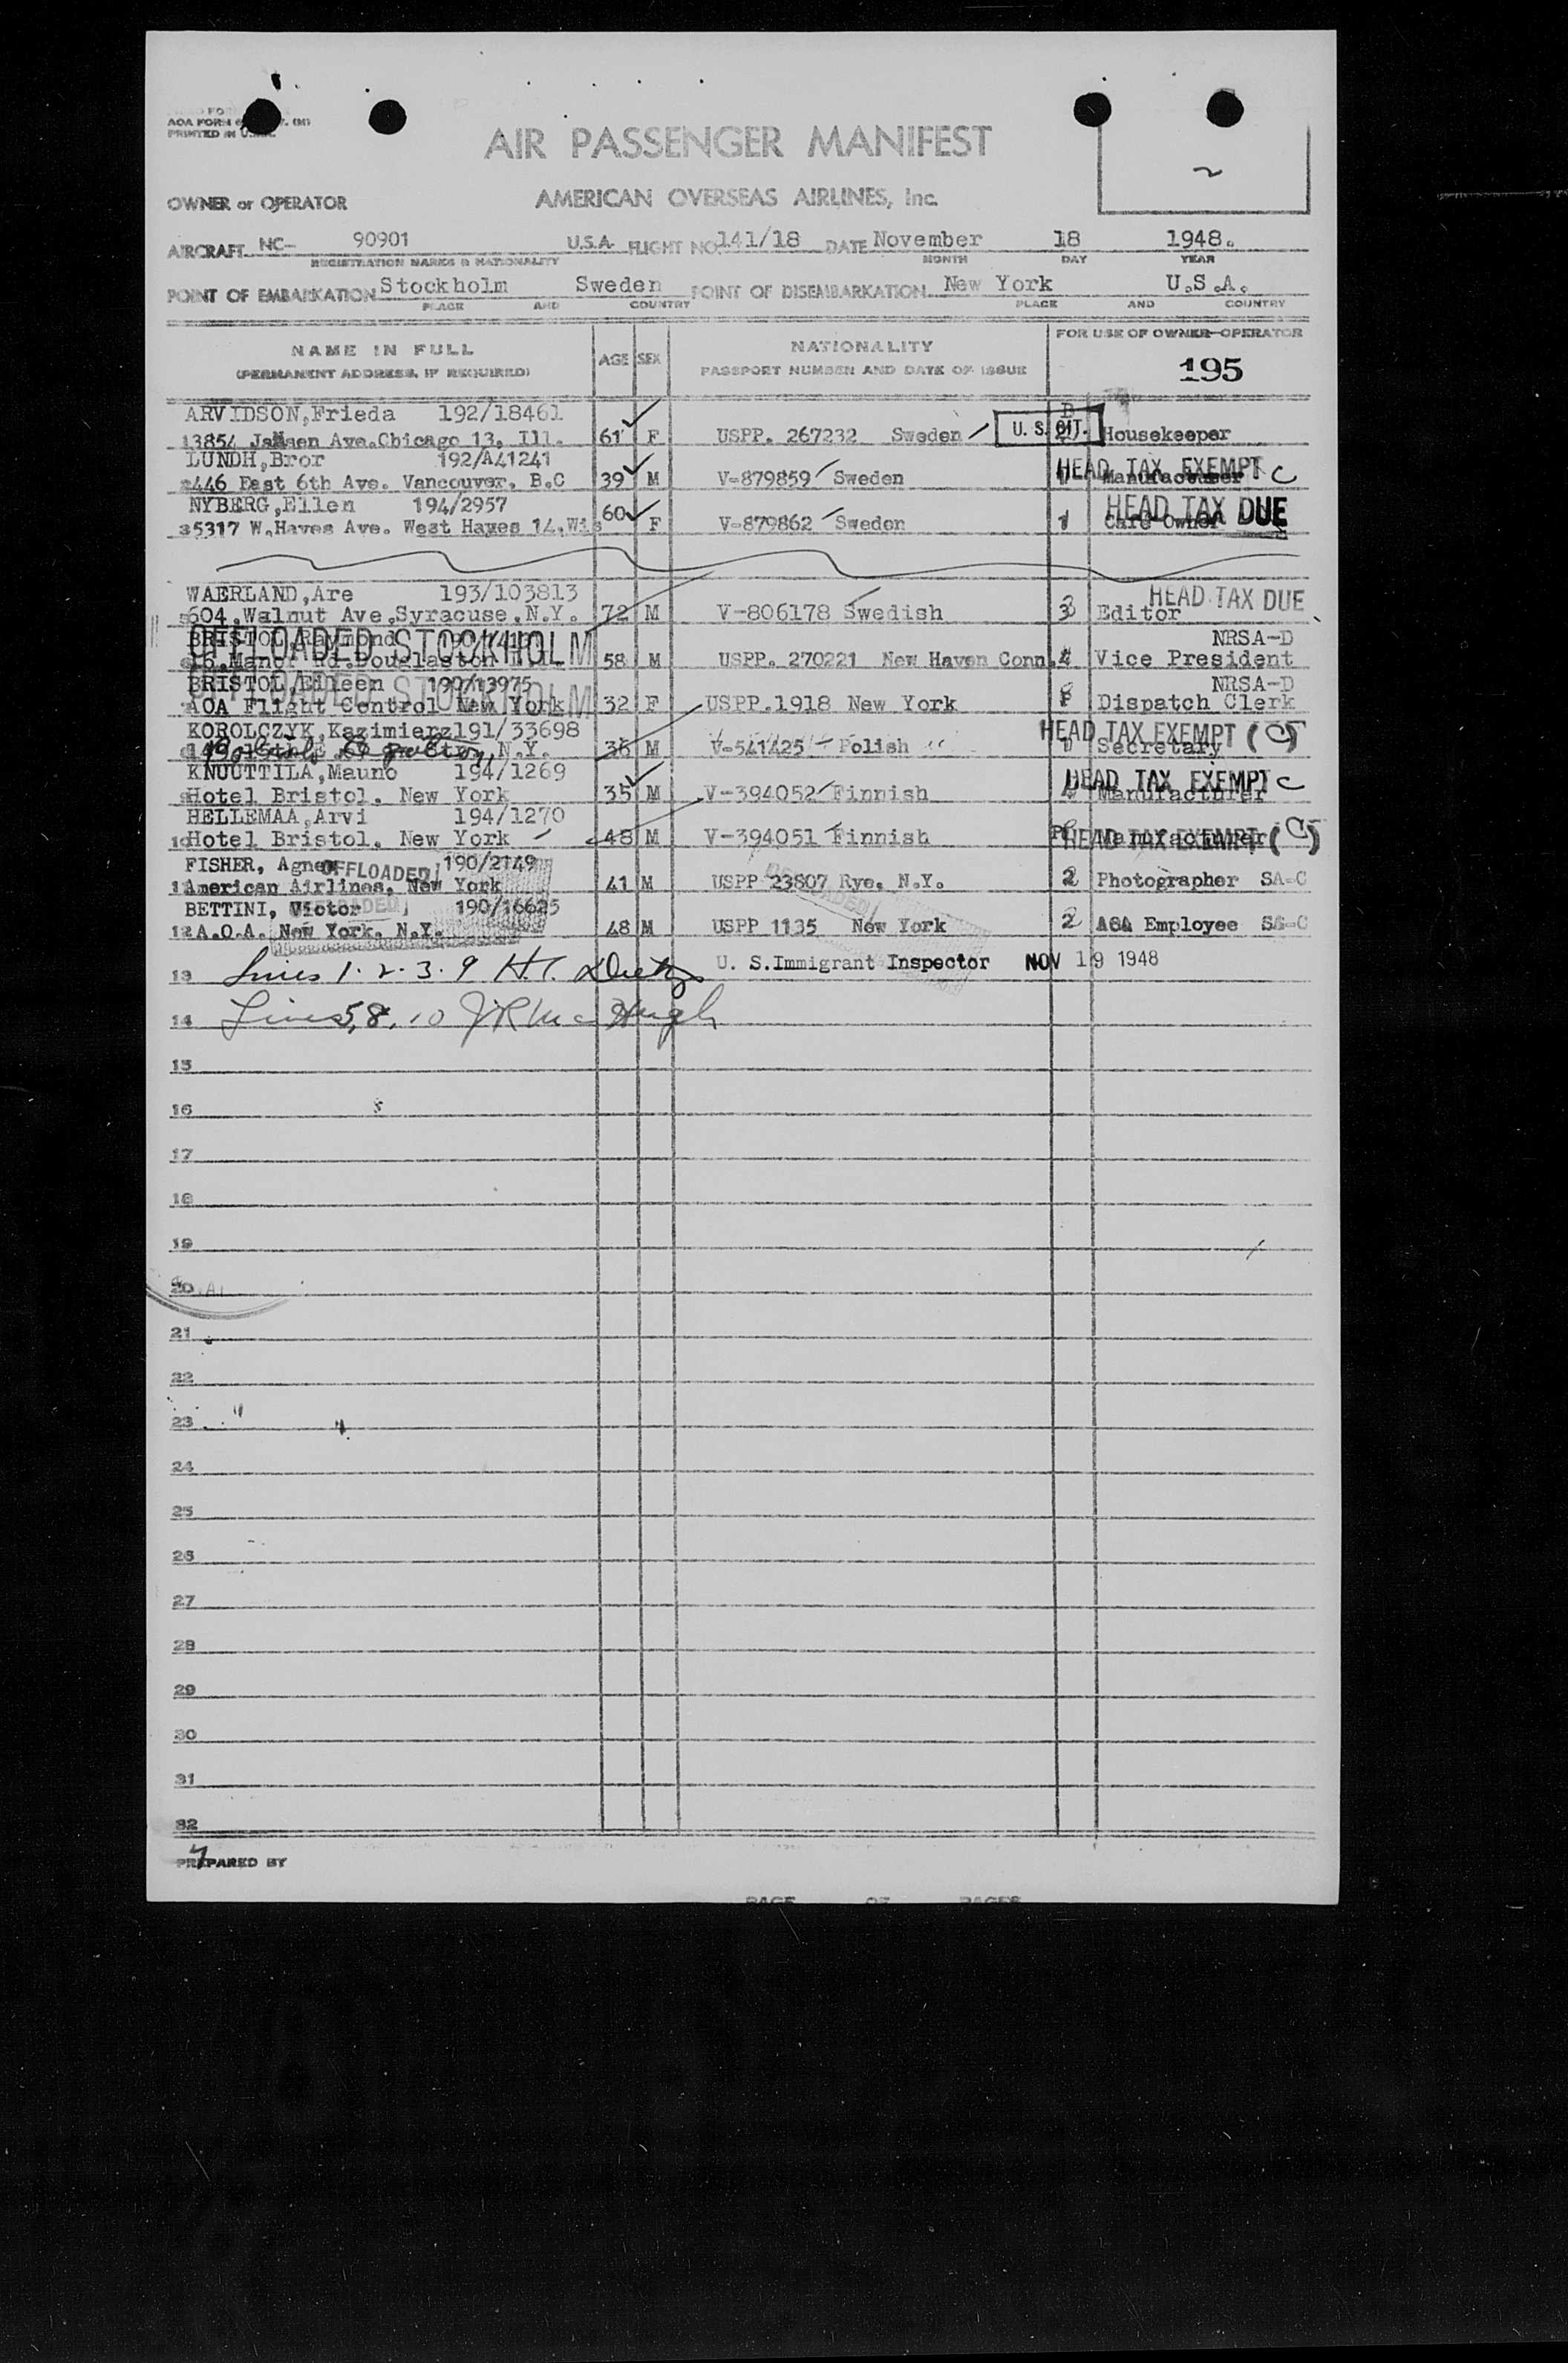 AOA FORM
PRINTED IN U.S.A.
AIR PASSENGER MANIFEST
OWNER or OPERATOR AMERICAN OVERSEAS AIRLINES, Inc.
AIRCRAFT NC- 90901 U.S.A. FLIGHT NO. 141/18 DATE November 18 1948.
REGISTRATION MARKS & NATIONALITY MONTH DAY YEAR
POINT OF EMBARKATION Stockholm Sweden POINT OF DISEMBARKATION New York U.S.A.
PLACE AND COUNTRY PLACE AND COUNTRY
NAME IN FULL AGE SEX NATIONALITY FOR USE OF OWNER-OPERATOR
(PERMANENT ADDRESS, IF REQUIRED) PASSPORT NUMBER AND DATE OF ISSUE 195
ARVIDSON,Frieda 192/18461 D
1 3854 Ave.Chicago 13, Ill. 61 F USPP. 267232 Sweden U. S. CIT. Housekeeper
LUNDH,Bror 192/A41241 HEAD TAX EXEMPT C
2 446 East 6th Ave. Vancouver, B.C 39 M V-879859 Sweden Manufacturer
NYBERG,Ellen 194/2957 HEAD TAX DUE
3 5317 W.Hayes Ave. West Hayes 14,Wis 60 F V-879862 Sweden 1 Cafe Owner
WAERLAND,Are 193/103813 HEAD TAX DUE
5 604,Walnut Ave,Syracuse,N.Y. 72 M V-806178 Swedish 3 Editor
BRISTOL Raymond NRSA-D
OFFLOADED STOCKHOLM
6 Manor Rd.Douglaston 58 M USPP. 270221 New Haven Conn. 4 Vice President
BRISTOL,Eileen 190/13975 NRSA-D
OFFLOADED STOCKHOLM
AOA Flight Control New York 32 F USPP.1918 New York Dispatch Clerk
KOROLCZYK,Kazimierz 191/33698 HEAD TAX EXEMPT (C)
N.Y. 36 M V-541425 Polish Secretary
KNUUTTILA,Mauno 194/1269 HEAD TAX EXEMPT C
9 Hotel Bristol. New York 35 M V-394052 Finnish Manufacturer
HELLEMAA,Arvi 194/1270 HEAD TAX EXEMPT (C)
10 Hotel Bristol, New York 48 M V-394051 Finnish Manufacturer
FISHER, Agnew OFFLOADED 190/2149
11 American Airlines, New York 41 M USPP 23807 Rye, N.Y. 2 Photographer SA-C
BETTINI, Victor OFFLOADED 190/16625
12 A.O.A. New York. N.Y. 48 M USPP 1135 New York 2 AOA Employee SA-C
U. S.Immigrant Inspector NOV 19 1948
13 Lines 1. 2. 3. 9 H.T.
14 Lines 5, 8, 10 J R McHugh
15
16
17
18
19
20
21
22
23
24
25
26
27
28
29
30
31
32
PREPARED BY
PAGE OF PAGES